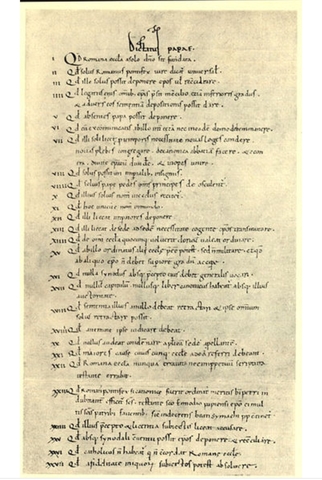 Dictatus pape.
I Qd Romana eccla a solo dno sit fundata.
II Qd solus Romanus pontifex iure dicat universal.
III Qd ille solus possit deponere epos ul reconciliare.
IIII Qd legatus ei omnib epis presit in concilio etiam inferioris gradus
& adversus eos sententiam depositionis possit dare.
V Qd absentes papa possit deponere.
VI Qd cum excommunicatis ab illo int cetera nec in eade domo debem manere.
VII Qd illi soli licet p temporis necessitate novas leges condere
novas plebes congregare. de canonica abbatia facere. & econ
tra. divite epatu dividere. & inopes unire.
VIII Qd solus possit uti imperialib insigniis.
VIIII Qd solius pape pedes omnes principes deosculent.
X Qd illius solius nom in ecclis recitet.
XI Qd hoc unicu e nom in mundo.
XII Qd illi liceat imperatores deponere.
XIII Qd illi liceat de sede ad sede necessitate cogente epos transmutare.
XIIII Qd de omi eccla quocunq voluerit clericu valeat ordinare.
XV Qd ab illo ordinatus alii eccle preesse potest sed n militare. et qd
ab aliquo epo n debet superiore gradu accipe.
XVI Qd nulla synodus absq precepto ei debet generalis vocari.
XVII Qd nullu capitulu nullusq liber canonicus habeat absq illi
auctoritate.
XVIII Qd sententia illius a nullo debeat retractari & ipse omium
solus retractare possit.
XVIIII Qd a nemine ipse iudicari debeat.
XX Qd nullus audeat condemnare aplica sede apellante.
XXI Qd maiores cause cuiuscunq eccle ad ea referri debeant.
XXII Qd Romana eccla nunqua erravit nec imppetuu scriptura
testante errabit.
XXIII Qd Romanus pontifex si canonice fuerit ordinat meritis b petri in
dubitant efficit scs. testante sco Ennodio papiensi epo ei mul
tis scis patrib faventib. sic in decretis beati Symachi pp continet
XXIIII Qd illius precepto & licentia subiectis liceat accusare.
XXV Qd absq synodali conventu possit epos deponere & reconciliare.
XXVI Qd catholicus n habeat q n concordat Romane eccle.
XXVII Qd a fidelitate iniquor subiectos potest absolvere.